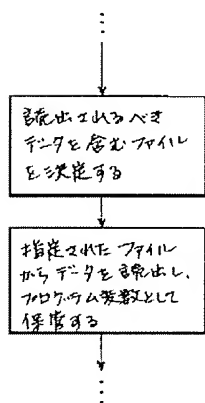 読出されるべき
データを含むファイル
を決定する
指定されたファイル
からデータを読出し、
プログラム変数として
保管する